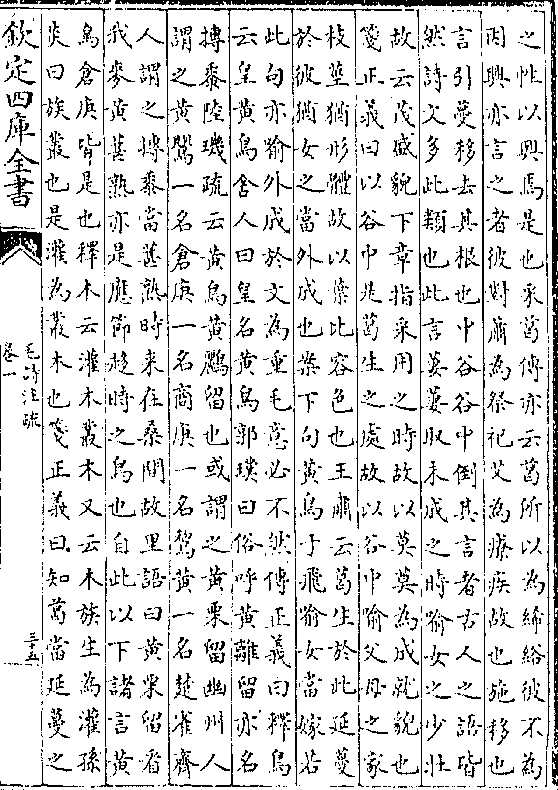 之性以興焉是也采葛傳亦云葛所以為絺綌彼不為
因興亦言之者彼對蕭為祭祀艾為療疾故也施移也
言引蔓移去其根也中谷谷中倒其言者古人之語皆
然詩文多此類也此言萋萋取未成之時喻女之少壯
故云茂盛貌下章指采用之時故以莫莫為成就貌也
箋正義曰以谷中是葛生之處故以谷中喻父母之家
枝莖猶形體故以葉比容色也王肅云葛生於此延蔓
於彼猶女之當外成也案下句黃鳥于飛喻女當嫁若
此句亦喻外成於文為重毛意必不然傳正義曰釋鳥
云皇黃鳥舍人曰皇名黃鳥郭璞曰俗呼黃離留亦名
摶黍陸璣疏云黃鳥黃鸝留也或謂之黃栗留幽州人
謂之黃鸎一名倉庚一名商庚一名鵹黃一名楚雀齊
人謂之摶黍當葚熟時来在桑間故里語曰黃栗留看
我麥黃葚熟亦是應節趍時之鳥也自此以下諸言黃
鳥倉庚皆是也釋木云灌木叢木又云木族生為灌孫
炎曰族叢也是灌為叢木也箋正義曰知葛當延蔓之
欽定四庫全書
毛詩注疏
卷一
三十五